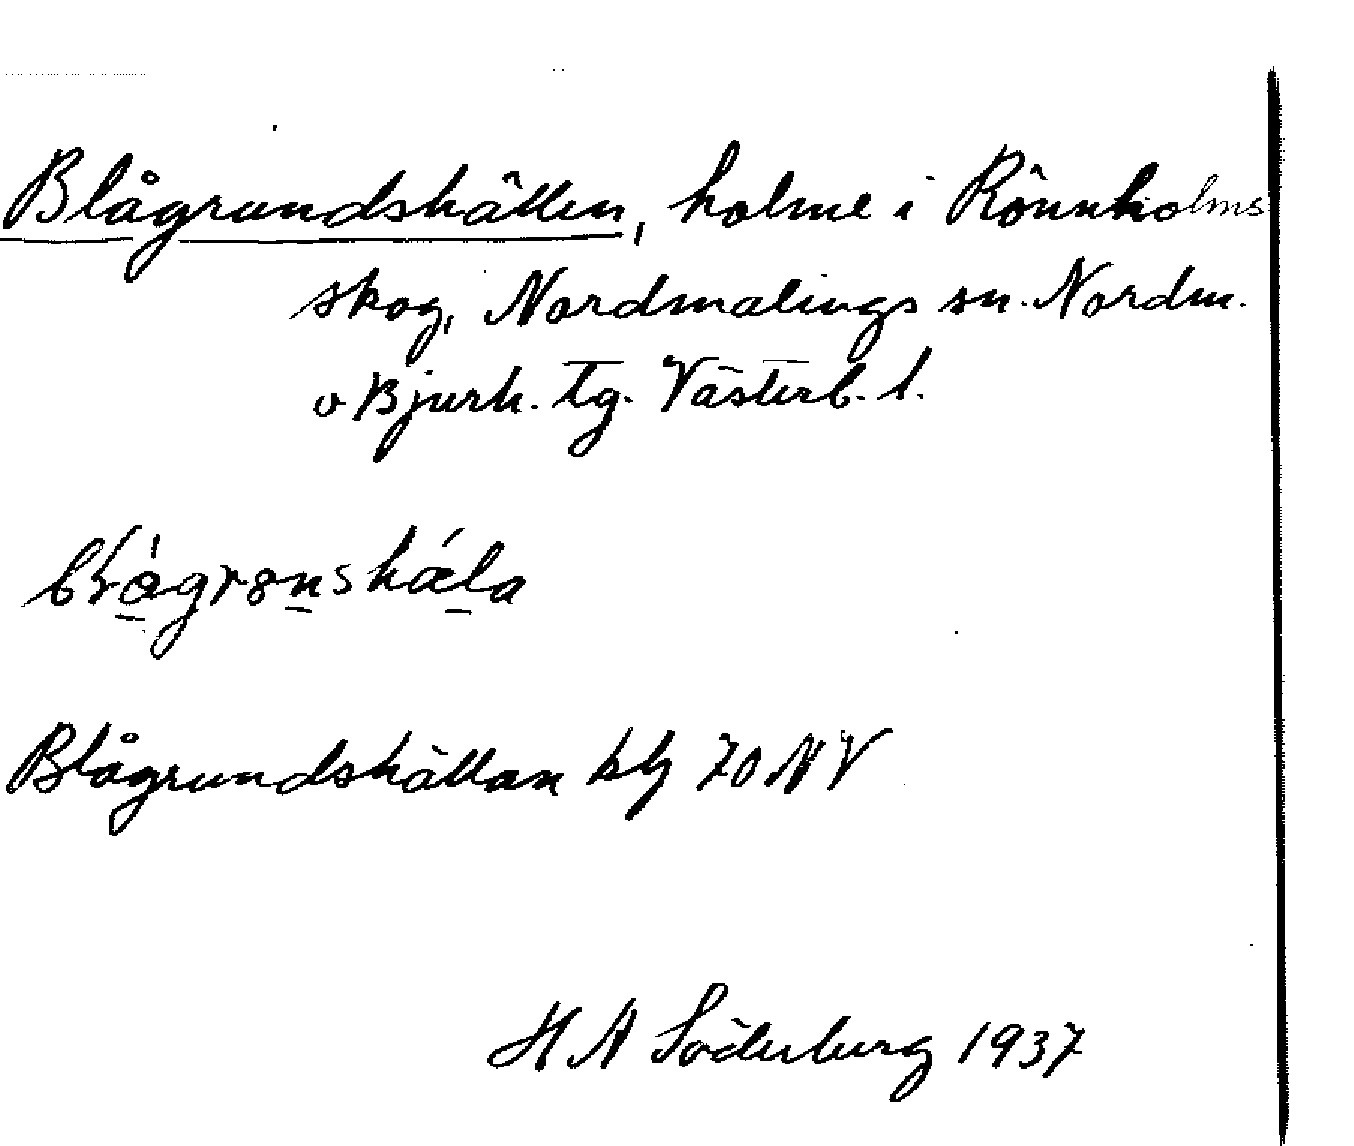 Blågrundshällen, holme i Rönnholms
skog, Nordmalings sn. Nordm.
o Bjurh. tg. Västerb. l.
Blågrundshällan kbl 70 NV
H A Söderberg 1937